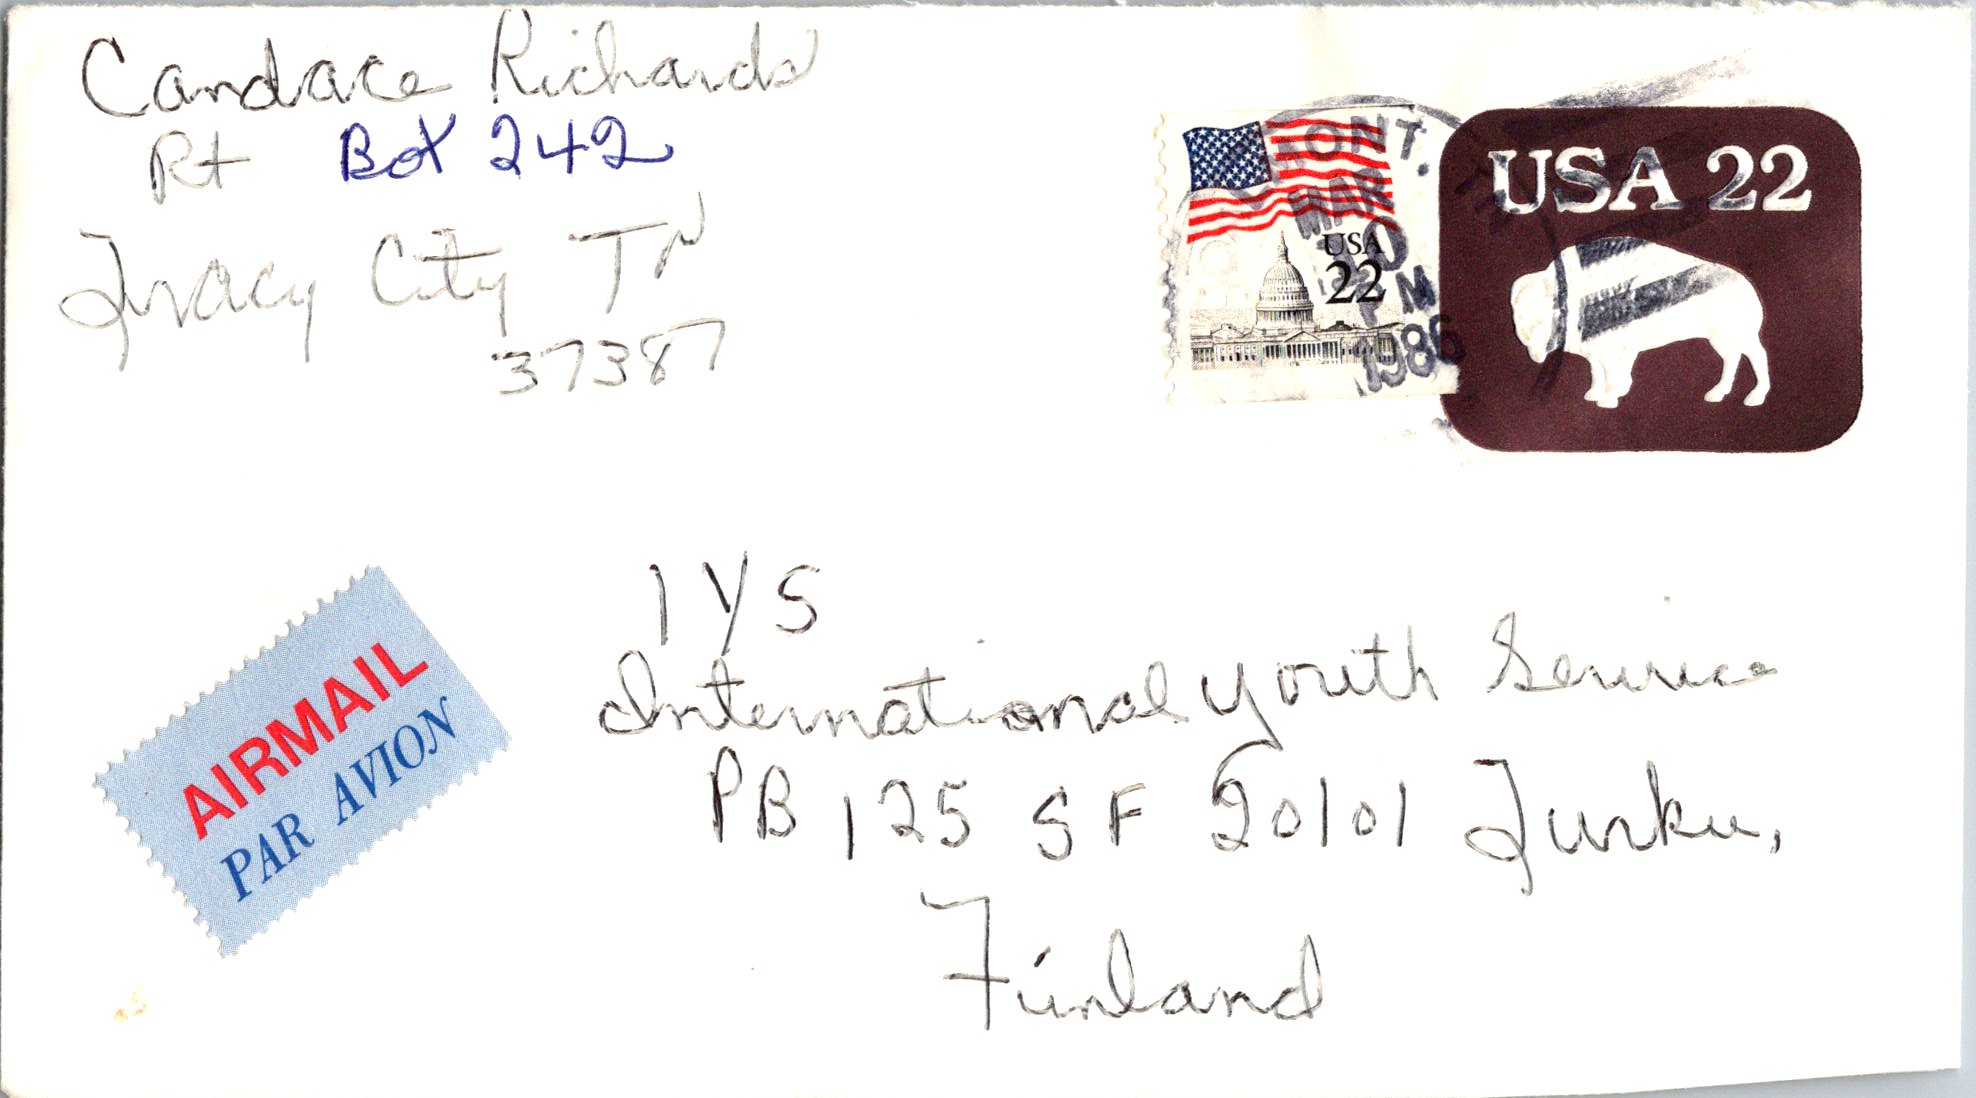 Candace Richards
Rt Box 242
Tracy City TN
37387
MONT.
MAR
10
PM
1986
USA
22
USA 22
AIRMAIL
PAR AVION
IYS
International Youth Service
PB 125 SF 20101 Turku,
Finland